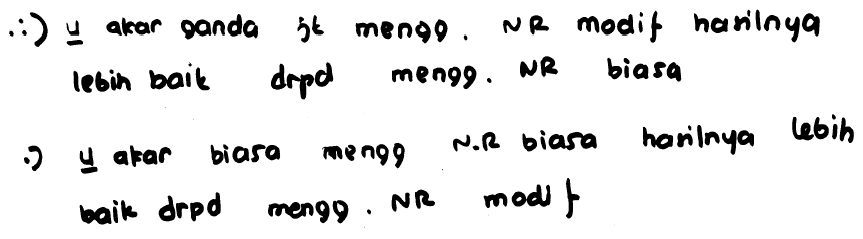 ∴) u akar ganda jk mengg. NR modif hasilnya
lebih baik drpd mengg. NR biasa
∴) u akar biasa mengg N.R biasa hasilnya lebih
baik drpd mengg. NR modif